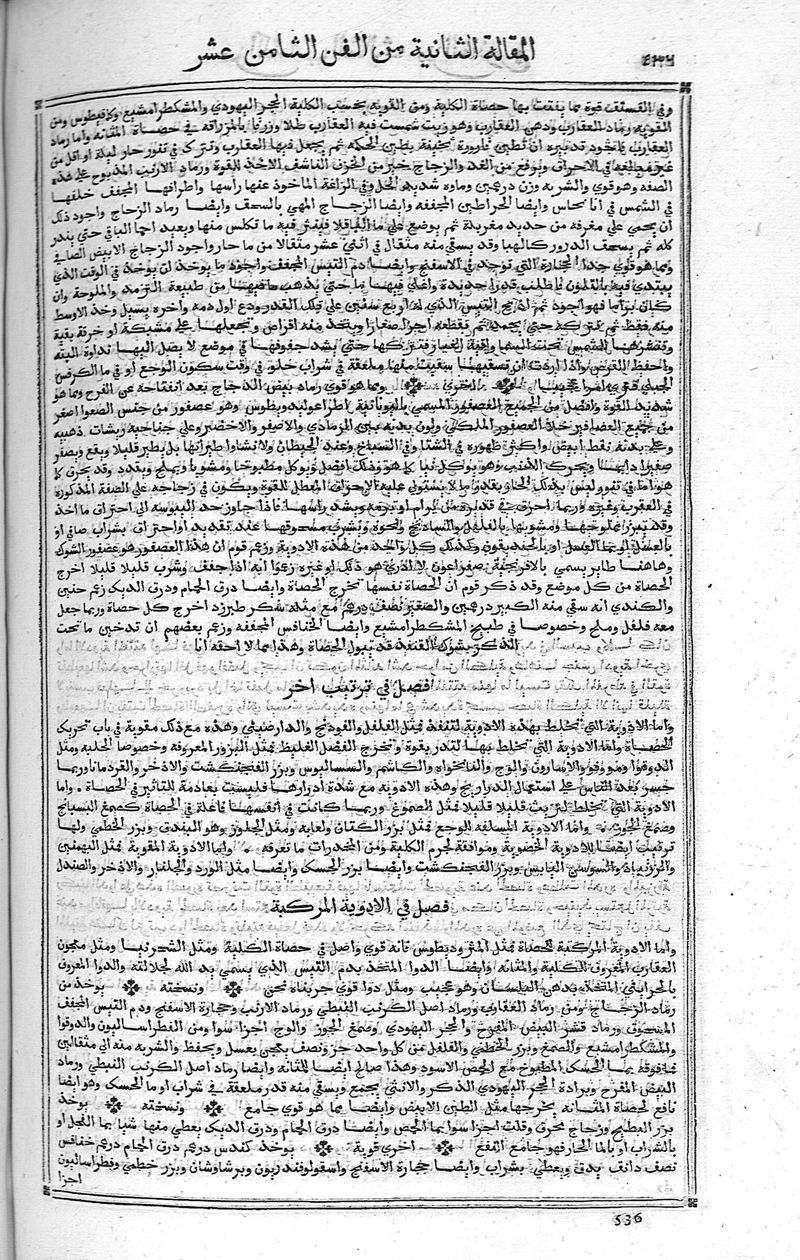 المقالة الثانية من الفن الثامن عشر
وفي الفستق قوة مما يفتت بها حصاة الكلية ومن القوية بحسب الكلية الحجر اليهودي والمشكطرامشيع وكمافيطوس ومن
القوية رماد العقارب ودهن العقارب وهو زيت شمست فيه العقارب طلا وزرقا بالمزراقة في حصاة المثانة واما رماد
العقارب فاجود تدبيره ان تطين قارورة نخينة بطين الحكمة ثم يجعل فيها العقارب وتترك في تنور حار ليلة او اقل من
غير مبالغة في الاحراق ويوقع من القد والزجاج خير من الخزف الناشف الاخذ للقوة ورماد الارنب المذبوح على هذه
الصفة وهو قوي والشربة وزن درهمين وماوه شديد الحل وفي الزاغة الماخوذ عنها راسها واطرافها المجفف خلفها
في الشمس في انا نحاس وايضا الخراطين المجففة وايضا الزجاج المهي بالسحق وايضا رماد الزجاج واجود ذلك
ان يحمي على مغرفة من حديد مغربلة ثم يوضع على ما الباقلا فينثر فيه ما تكلس منها ويعيد احما الباقي حتى يندر
كله ثم يسحق الذرور كالهبا وقد يسقي منه مثقال في اثني عشر مثقالا من ما حار واجود الزجاج الابيض الصافي
ومما هو قوي جدا الحجارة التي توجد في الاسفنج وايضا دم التيس المجفف واجود ما يوخذ ان يوخذ في الوقت الذي
يبتدي فيه بالتلون فاطلب قدرا جديدة واغلي فيها ما حتى يذهب ما فيها من طبيعة الترمد والملوحة وان
كان براما فهو اجود ثم اذبح التيس الذي له اربع سنين على تلك القدر ودع اول دمه واخره يسيل وخذ الاوسط
منه فقط ثم تتركه حتى يجمد ثم تقطعه اجزا صغارا ويتخذ منه اقراص وتجعلها على مشبكة او خرقة نقية
وتنشرها للشمس تحت السما واقية الغبار فتتركها حتى يشتد جفوفها في موضع لا يصل اليها نداوة البتة
واحفظ القرص واذا اردت ان تسقيها سقيت منها ملعقة في شراب حلو في وقت سكون الوجع او في ما الكرفس
الجبلي فتري امرا عجيبا اخري ومما هو قوي رماد بيض الدجاج بعد انفتاحه عن الفرخ ومما هو
شديد القوة وافضل من الجميع العصفور المسمي باليونانية اطراغوليديطوس وهو عصفور من جنس الصعوا اصغر
من جميع العصافير خلا العصفور الملكي ولون بدنه بين الرمادي والاصفر والاخضر وعلى جناحيه ريشات ذهبية
وعلى بدنه نقط ابيض واكثر ظهوره في الشتا وفي السباخ وعند الحيطان ولا يتشاوا طيرانها بل يطير قليلا ويقع ويصفر
صفيرا دايما ويحرك الذنب وهو يوكل نيا كما هو وذلك افضل ويوكل مطبوخا ومشويا ويملح ويقدد وقد يحرق كما
هو اما في تنور ليس بذلك الحار بقدر ما لا يستولي عليه الاحراق المعطل للقوة ويكون في زجاجة على الصفة المذكورة
في العقرب وغيره وربما احرق في قديرة من برام او برمة ويشد راسها فاذا جاوز حد اليبوسة الى احتراق ما اخذ
وقد يبزر مملوحها ومشويها بالفلفل والساذج ونحوه ويشرب مسحوقها عند تقديد او احتراق بشراب صافي او
بالعسل او بما العسل او بالحنديقون وكذلك كل واحد من هذه الادوية وزعم قوم ان هذا العصفور هو عصفور الشوك
وهاهنا طاير يسمي بالافرنجية صفراغون لا ادري هو ذلك او غيره زعموا انه اذا جفف وشرب قليلا قليلا اخرج
الحصاة من كل موضع وقد ذكر قوم ان الحصاة نفسها تخرج الحصاة وايضا درق الحمام ودرق الديك زعم حنين
والكندي انه سقي منه الكبير درهمين والصغير نصف درهم مع مثله سكر طبرزد اخرج كل حصاة وربما جعل
معه فلفل وملح وخصوصا في طبيخ المشكطرامشيع وايضا الخنافس المجففة وزعم بعضهم ان تدخين ما تحت
الذكر بشوك القنفذ قد يبول الحصاة وهذا مما لا احقه انا
فصل في ترتيب اخر
واما الادوية التي تخلط بهذه الادوية لتنفذ فمثل الفلفل والفودنج والدارصيني وهذه مع ذلك مقوية في باب تحريك
الحصاة واما الادوية التي تخلط بها لتدر بقوة وتخرج الفضل الغليظ فمثل البزور المعروفة وخصوصا الحلبة ومثل
الدوقوا ومو وفو والاسارون والوج والنانخواه والكاشم والسساليوس وبزر الفنجنكشت والاذخر والقردمانا وربما
جسر بعض الناس على استعمال الذراريح وهذه الادوية مع شدة ادرارها فليست بعادمة للتاثير في الحصاة واما
الادوية التي تخلط لتريث قليلا قليلا فمثل الصموغ وربما كانت في انفسها فاعلة في الحصاة كصمغ البسبايج
وصمغ الجوز واما الادوية المسلفة الوجع فمثل بزر الكتان ولعابه ومثل الجلوز وهو البندق وبزر الخطمي ولها
ترقيب ايضا للادوية الحضوية وموافقة لجرم الكلية ومن المخدرات ما تعرفه واما الادوية المقوية فمثل البهمنين
والزرنباد والسوسن اليابس وبزر الفنجنكشت وايضا بزر الحسك وايضا مثل الورد والجلنار والاذخر والصندل
فصل في الادوية المركبة
واما الادوية المركبة للحصاة فمثل المثروديطوس فانه قوي واصل في حصاة الكلية ومثل الشجرنيا ومثل معجون
العقارب المعروف للكلية والمثانة وايضا الدوا المتخذ بدم التيس الذي يسمي يد الله لجلالته والدوا المعروف
بالحرابثي المتخذ بدهن البلسان وهو عجيب ومثل دوا قوي جربناه نحن ونسخته يوخذ من
رماد الزجاج ومن رماد العقارب ورماد اصل الكرنب النبطي ورماد الارنب وحجارة الاسفنج ودم التيس المجفف
المسحوق ورماد قشر البيض المفرخ والحجر اليهودي وصمغ الجوز والوج اجزا سوا ومن الفطراساليون والدوقوا
والمشكطرامشيع والصمغ وبزر الخطمي والفلفل من كل واحد جز ونصف يعجن بعسل ويحفظ والشربة منه الى مثقالين
فما فوقه بما الحسك المطبوخ مع الحمص الاسود وهذا صالح ايضا للمثانة وايضا رماد اصل الكرنب النبطي ورماد
البيض المفرخ وبرادة الحجر اليهودي الذكر والانثي يجمع ويسقي منه قدر ملعقة في شراب او ما الحسك وهو ايضا
نافع لحصاة المثانة يخرجها مثل الطين الابيض وايضا مما هو قوي جامع ونسخته يوخذ
بزر البطيخ وزجاج محرق وقلت اجزا سوا بما الحمص وايضا درق الحمام ودرق الديك يعطي منها شيا بما الفجل او
بالشراب او بالما الحار فهو جامع النفع اخري قوية يوخذ كندس درهم درق الحمام درهم خنافس
نصف دانق يدق ويعطي بشراب وايضا حجارة الاسفنج واسقولوفندريون وبرشاوشان وبزر خطمي وفطراساليون
اجزا
536